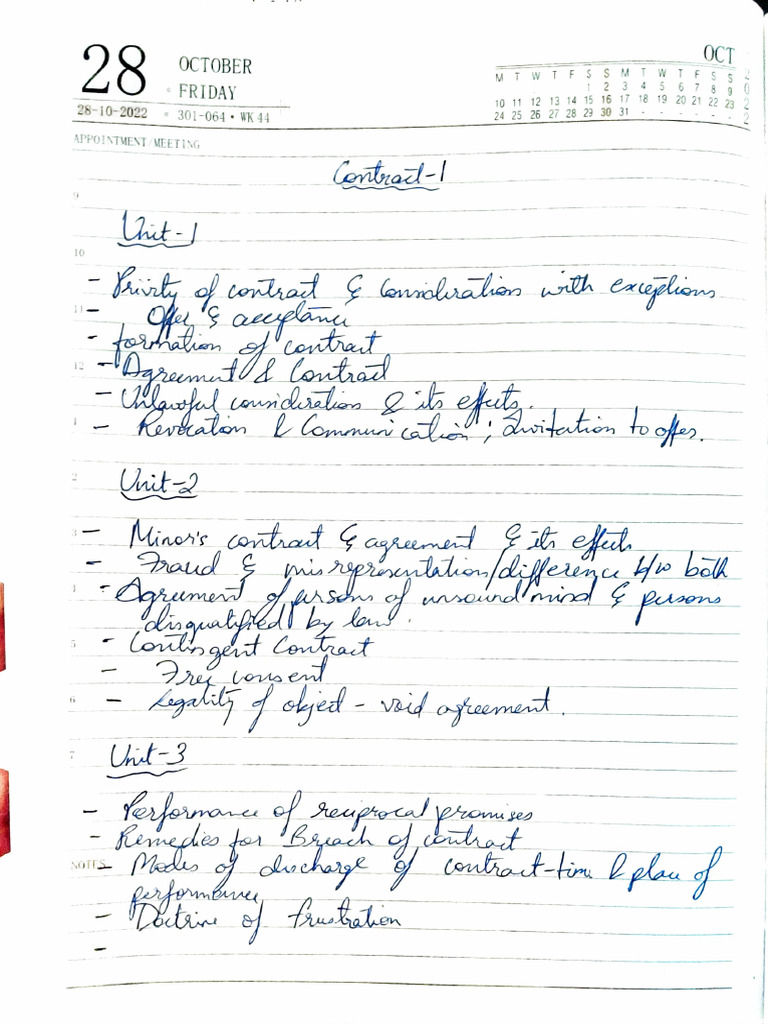 28 OCTOBER
FRIDAY
28-10-2022 301-064 • WK 44
OCT
2022
M T W T F S S M T W T F S S
1 2 3 4 5 6 7 8 9
10 11 12 13 14 15 16 17 18 19 20 21 22 23
24 25 26 27 28 29 30 31 - - - - - -
APPOINTMENT/MEETING
Contract-1
9
Unit-1
10
- Privity of contract & considerations with exceptions
11 - Offer & acceptance
- formation of contract
12 - Agreement & Contract
- Unlawful considerations & its effects.
1 - Revocation & Communication ; Invitation to offer.
2 Unit-2
3 - Minor's contract & agreement & its effects
- Fraud & misrepresentation/difference b/w both
4 - Agreement of persons of unsound mind & persons
disqualified by law.
5 - Contingent Contract
- Free consent
6 - Legality of object - void agreement.
7 Unit-3
- Performance of reciprocal promises
- Remedies for Breach of contract
NOTES - Modes of discharge of contract-time & place of
performance
- Doctrine of frustration
-